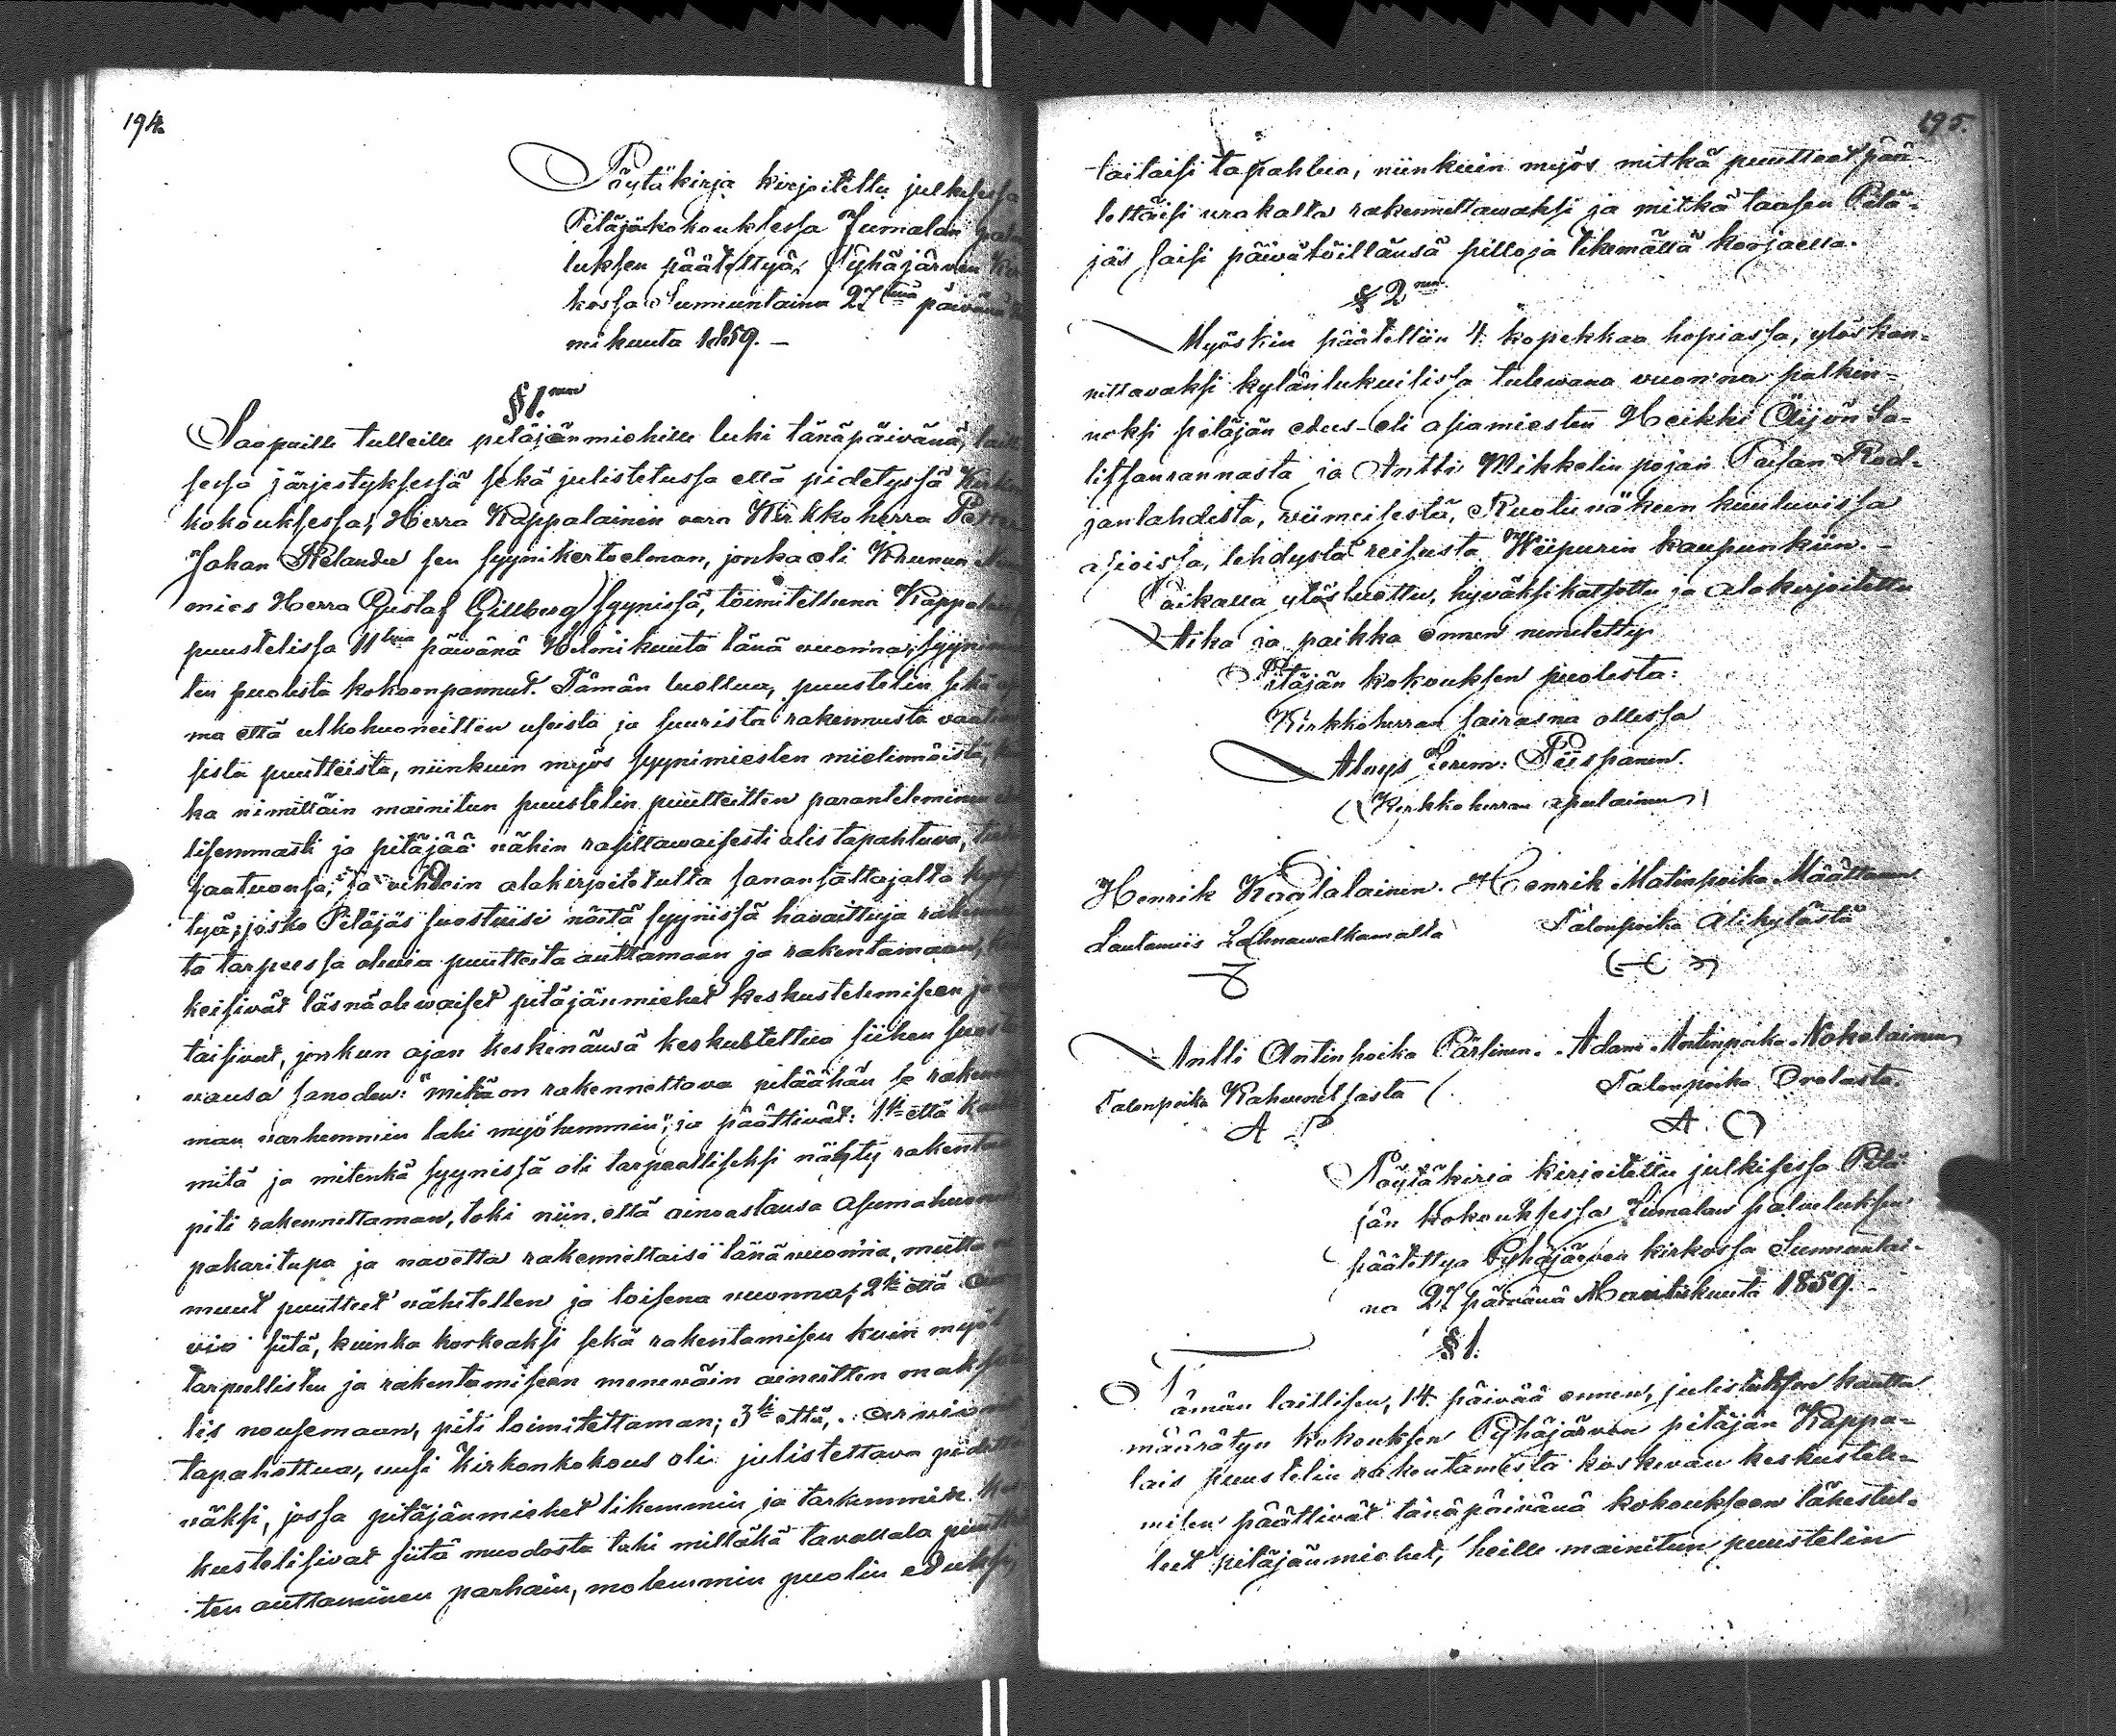 194.
Pöytäkirja kirjoitettu julkisessa
Pitäjäkokouksessa Jumalan
luksen päätettyä, Pyhäjärven
kossa Sunnuntaina 27tenä päivänä
mikuuta 1859. –
§ 1.
Saapuille tulleille pitäjänmiehille luki tänäpäivänä,
sessa järjestyksessä sekä julistetussa että pidetyssä
kokouksessa, Herra Kappalainen vara Kirkkoherra
Johan Relander sen syynikertoelman, jonka oli Kruunun
mies Herra Gustaf Gillberg syynissä, toimitettuna
puustelissa 11tena päivänä Helmikuuta tänä vuonna,
ten puolesta kokoonpannut. Tämän luettua, puustelin sekä
ma että ulkohuoneitten useista ja suurista rakennusta
sista puutteista, niinkuin myös syynimiesten mietinnöistä,
ka nimittäin mainitun puustelin puutteitten paranteleminen
lisemmasti ja pitäjää vähin rasittawaisesti olis tapahtuva,
saatuansa, ja vihdoin alakirjoitetulta sanansaattajalta
tyä, josko Pitäjäs suostuisi nöitä syynissä havaittuja
ta tarpeessa olevia puutteita auttamaan ja rakentamaan,
keisivät läsnäolewaiset pitäjänmiehet keskustelemiseen
taisivat, jonkun ajan keskenänsä keskusteltua siihen
vansa sanoden: "mikä on rakennettava pitäähän se
man varhemmin tahi myöhemmin", ja päättivät: 1ki että
mitä ja mitenkä syynissä oli tarpeelliseksi nähty
piti rakennettaman, toki niin, että ainoastansa Asumahuone
pakaritupa ja navetta rakennettaisi tänä vuonna, mutta
muut puutteet vähitellen ja toisena vuonna; 2ki että
vio siitä, kuinka korkeaksi sekä rakentamisen kuin myös
tarpeellisten ja rakentamiseen menevöin aineitten
lis nousemaan, piti toimitettaman; 3ki että, arvion
tapahattua, uusi Kirkonkokous oli julistettava
väksi, jossa pitäjänmiehet likemmin ja tarkemmin
kustelisivat siitä muodosta tahi millakä tavallala
ten auttaminen parhain, molemmin puolin eduksi,
195.
taitaisi tapahtua, niinkuin myös mitkä puutteet pan-
lettäisi urakalla rakennettawaksi ja mitkä taasen Pitä-
jäs saisi päivätöillänsä pilloja tekemällä korjaella.
§ 2
Myöskin päätettiin 4. kopekkaa hopiassa, ylöskan-
nettavaksi kylänlukuilissa tulewana vuonna palkin-
noksi pitäjän edus- eli asiamiesten Heikki Äijön Sa-
litsanrannasta ja Antti Mikkelin pojan Paisan Rod-
janlahdesta, viimeisestä, Ruotuväkeen kuuluvissa
asioissa, tehdystä reisusta Wiipurin kaupunkiin. –
Paikalla ylösluettu, hyväksikatsottu ja alakirjoitettu
Aika ja paikka ennen nimitetty
Pitäjän kokouksen puolesta:
Kirkkoherran sairasna ollessa
Aloys Jerem: Piispanen.
(Kirkkoherran apulainen)
Henrik Kaatalainen. Henrik Matinpoika Määttänen
Lautamiis Lahnawalkamalta Talonpoika Alikylästä
Antti Antinpoika Pärsinen. Adam Antinpoika Nokelainen
Talonpoika Kahvenitsasta Talonpoika Orolasta.
A P A. O
Pöytäkirja kirjoitettu julkisessa Pitä
jän kokouksessa Jumalan palveluksen
päätettyä Pyhäjärven kirkossa Sunnuntai-
na 27 päivänä Maaliskuuta 1859. –
§ 1.
Tämän laillisen, 14 päivää ennen, julistuksen kautta
määrätyn kokouksen Pyhäjärven pitäjän Kappa-
lais puustelin rakentamista koskevan keskustele-
misen päättivät tänäpäivänä kokoukseen lähestul-
leet pitäjänmiehet, heille mainitun puustelin